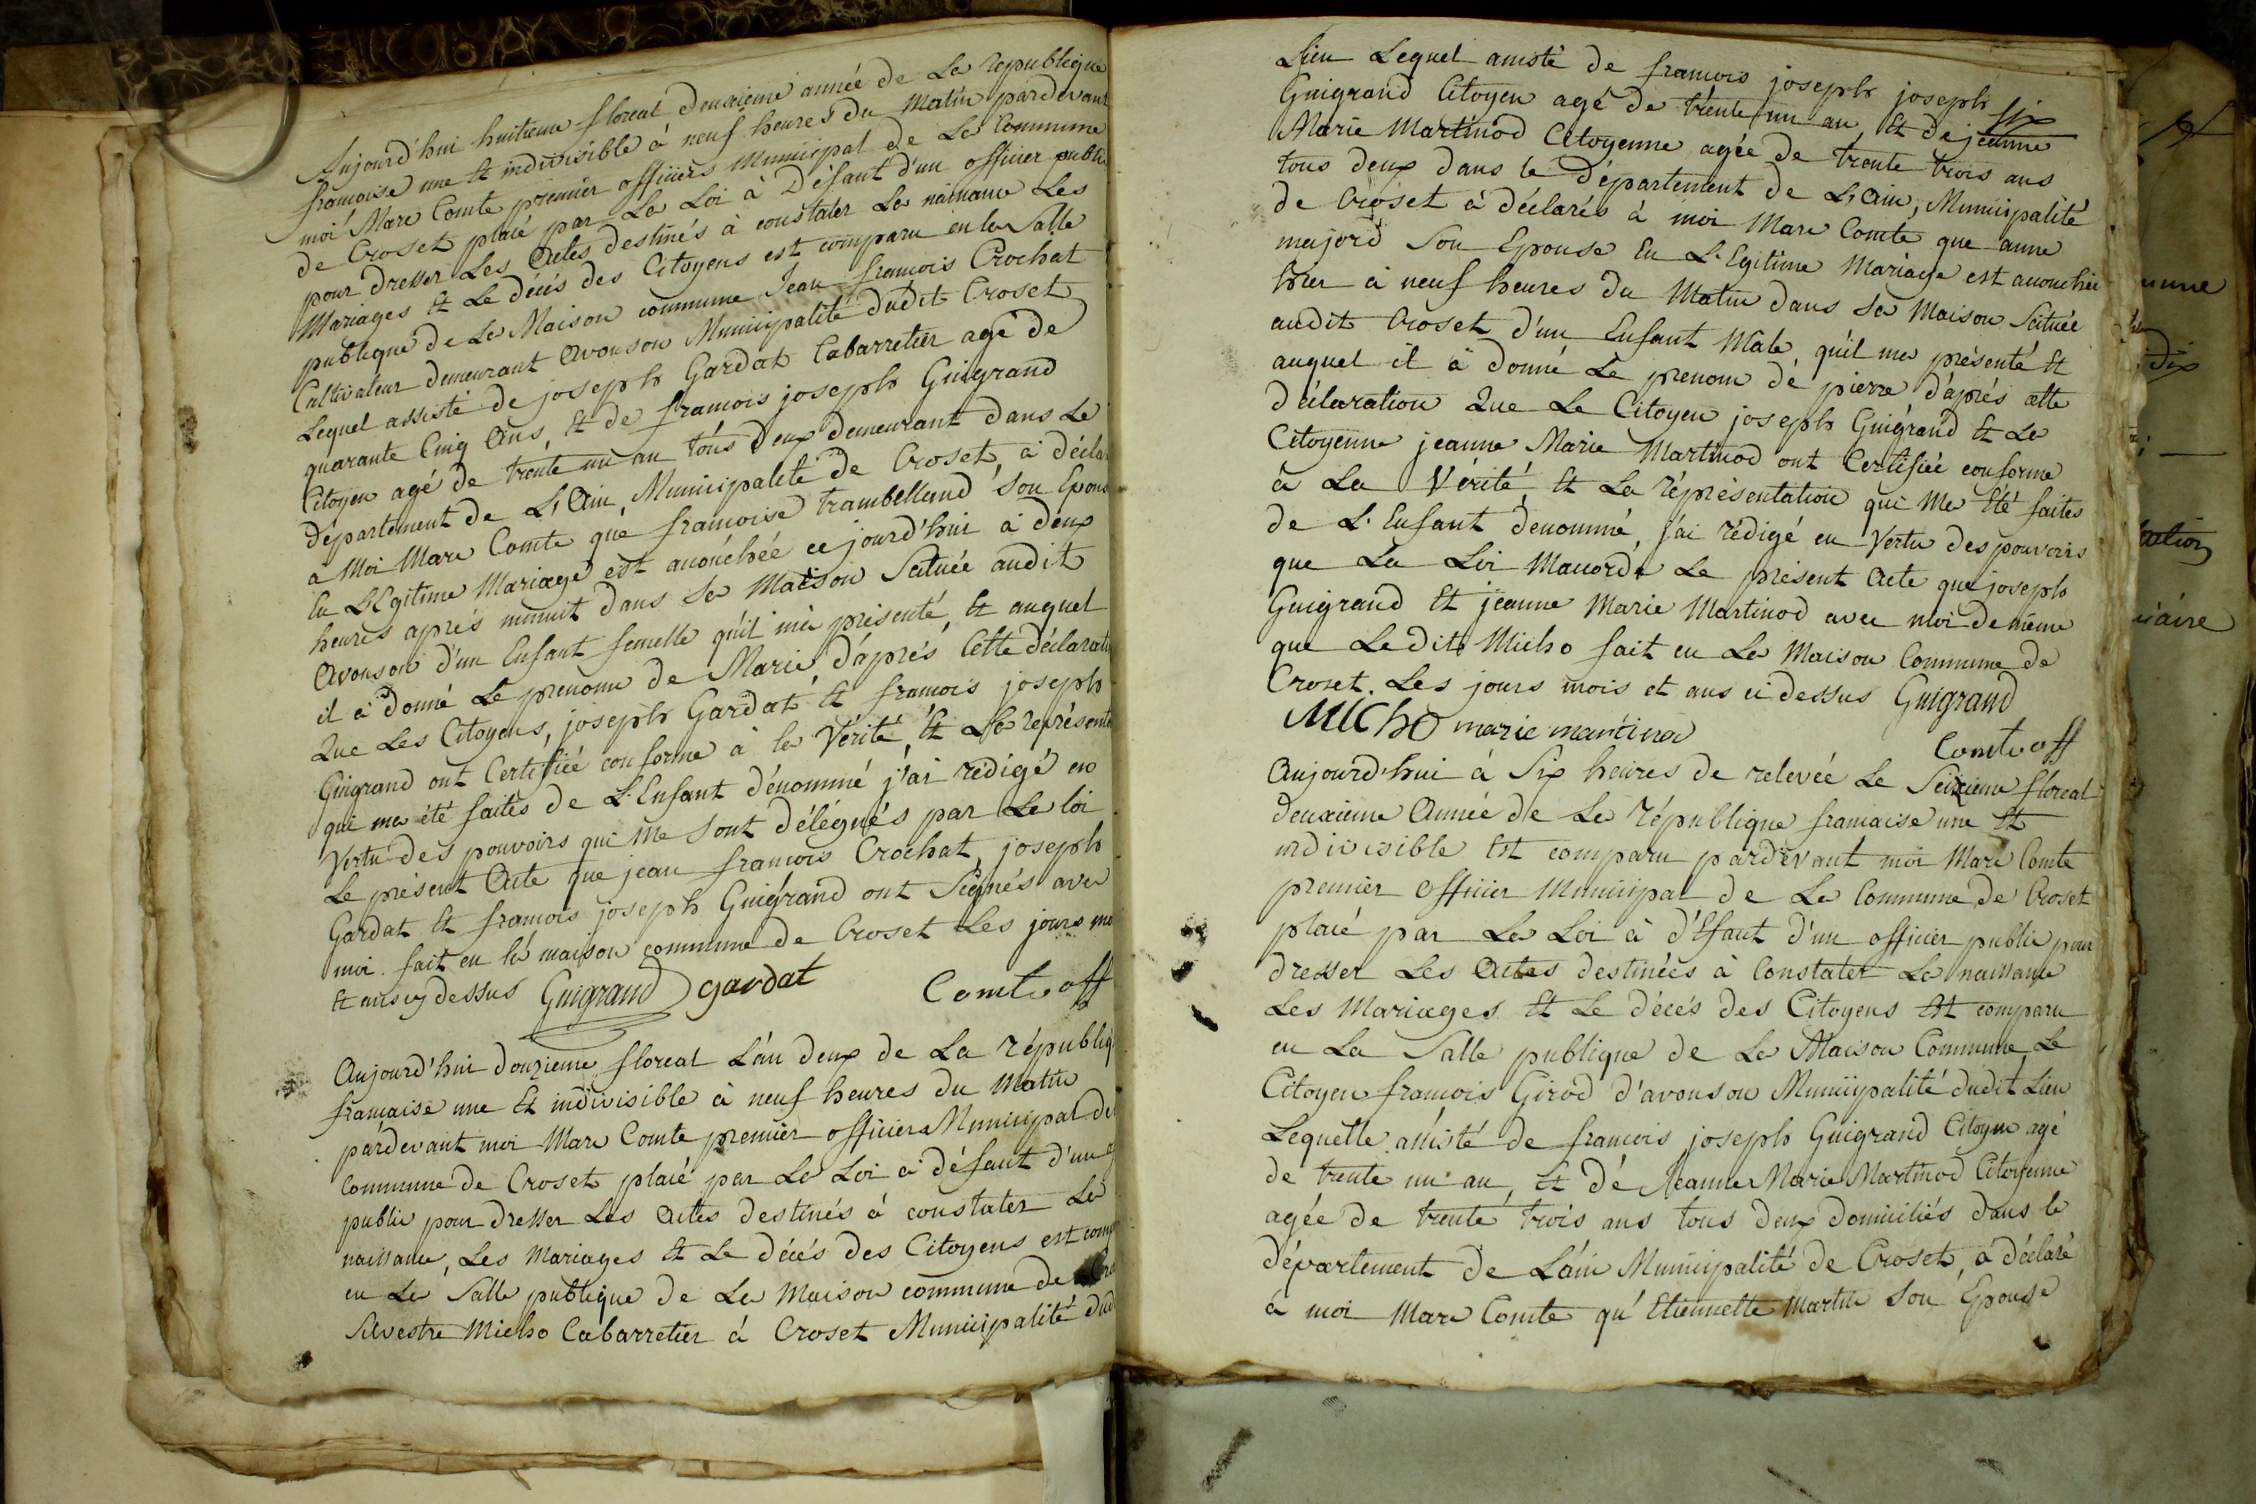 Aujourd'hui huitieme floreal deuxieme année de La republique
francoise une Et indivisible à neuf heures du Matin pardevant
moi Marc Comte premier officiers Municipal de La Commune
de Croset placé par La Loi à Défaut d'un officier public
pour dresser Les Actes destinés à constater La naissance Les
Mariages Et Le décés des Citoyens est comparu en la Salle
publique de La Maison commune Jean francois Crochat
Cultivateur demeurant Avouson Municipalité dudit Croset
Lequel assisté de joseph Gardat Cabarretier agé de
quarante Cinq Ans, Et de francois joseph Guigrand
Citoyen agé de trente un an tous deux demeurant dans Le
département de L'Ain, Municipalité de Croset, à décla
a Moi Marc Comte que francoise trambelland son Epous
En LEgitime Mariage est accouchée ce jourd'hui à deux
heures aprés minuit dans sa Maison Scituée audit
Avouson d'un Enfant femelle qu'il m'a présenté, Et auquel
il à donné Le prenom de Marie d'aprés Cette déclarati
Que Les Citoyens, joseph Gardat Et francois joseph
Guigrand ont Certifiéé conforme à la Vérité, Et La représenta
qui ma été faites de L'Enfant dénommé j'ai rédigé en
Vertu des pouvoirs qui me sont délégués par La loi
Le présent Acte que jean francois Crochat, joseph
Gardat Et francois joseph Guigrand ont Signés avec
moi. fait en la maison commune de Croset Les jours mo
Et ans cy dessus Guigrand gardat Comte off
Aujourd'hui douzieme floreal L'an deux de La républiq
francaise une Et indivisible à neuf heures du Matin
pardevant moi Marc Comte premier officiers Municipal de
Commune de Croset placé par La Loi à défaut d'un
public pour dresser Les Actes destinés à constater La
naissance, Les Mariages Et Le décés des Citoyens est comp
en La Salle publique de La Maison commune de
Silvestre Micho Cabarretier à Croset Municipalité dud
Lieu Lequel assisté de francois joseph joseph
Guigrand Citoyen agé de trente un an Et de jeanne
Marie Martinod Citoyenne agée de trente trois ans
tous deux dans le Département de L'Ain, Municipalité
de Croset à déclarés à moi Marc Comte que anne
majord Son Epouse En LEgitime Mariage est accouchée
hier à neuf heures du Matin dans sa Maison Scituée
audit Croset d'un Enfant Male, qu'il ma présenté Et
auquel il à donné Le prenom de pierre d'aprés cette
déclaration Que Le Citoyen joseph Guigrand Et La
Citoyenne jeanne Marie Martinod ont Certifiéé conforme
à La Vérité, Et La réprésentation qui Ma Eté faites
de L'Enfant denommé, j'ai rédigé en Vertu des pouvoirs
que La Loi Macorde Le présent Acte que joseph
Guigrand Et jeanne Marie Martinod avec moi de même
que Ledit Micho fait en La Maison Commune de
Croset. Les jours mois et ans ci dessus Guigrand
Micho marie martinod
Comte off
Aujourd'hui à Six heures de relevée Le Seizieme floreal
deuxieme Année de La République francaise une Et
indivisible Est comparu pardevant moi Marc Comte
premier officier Municipal de La Commune de Croset
placé par La Loi à d'Efaut d'un officier public pour
dresser Les Actes destinées à Constater La naissance
Les Mariages Et Le décés des Citoyens Est comparu
en La Salle publique de La Maison Commune Le
Citoyen francois Girod d'avouson Municipalité dudit Lieu
Lequelle assisté de francois joseph Guigrand Citoyen agé
de trente un an, Et de Jeanne Marie Martinod Citoyenne
agée de trente trois ans tous deux domiciliés dans le
département de L'ain Municipalité de Croset, à déclaré
à moi Marc Comte qu'Etiennette Martin Son Epouse